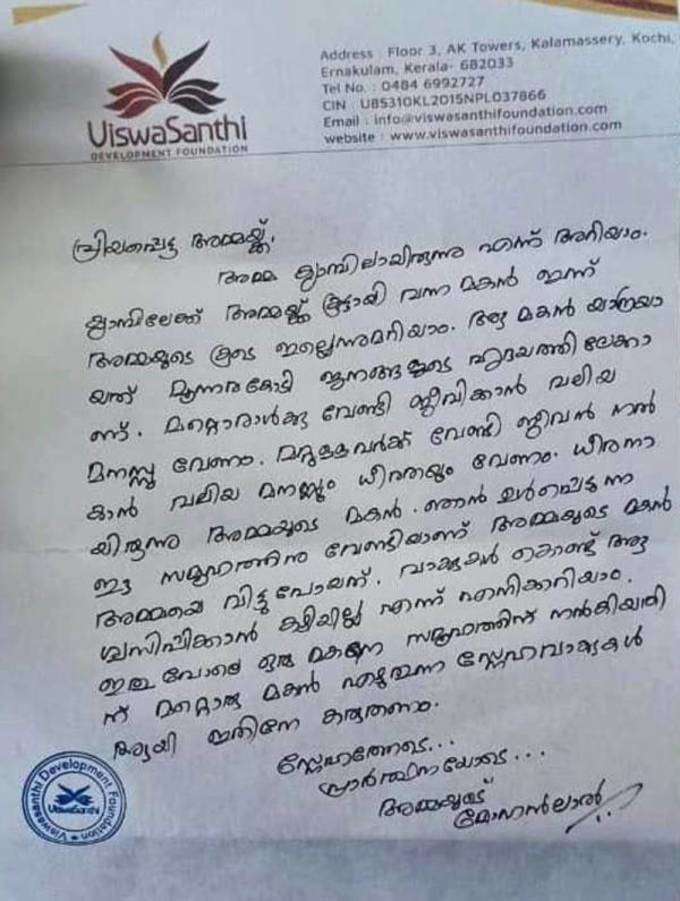 Address : Floor 3, AK Towers, Kalamassery, Kochi,
Ernakulam, Kerala- 682033
Tel No. : 0484 6992727
CIN : U85310KL2015NPL037866
Email : info@viswasanthifoundation.com
website : www.viswasanthifoundation.com
ViswaSanthi
DEVELOPMENT FOUNDATION
പ്രിയപ്പെട്ട അമ്മയ്ക്ക്,
അമ്മ ക്യാമ്പിലായിരുന്നു എന്ന് അറിയാം.
ക്യാമ്പിലേക്ക് അമ്മയ്ക്ക് കൂട്ടായി വന്ന മകൻ ഇന്ന്
അമ്മയുടെ കൂടെ ഇല്ലെന്നുമറിയാം. ആ മകൻ യാത്രയാ
യത് മൂന്നരകോടി ജനങ്ങളുടെ ഹൃദയത്തിലേക്കാ
ണ്. മറ്റൊരാൾക്കു വേണ്ടി ജീവിക്കാൻ വലിയ
മനസ്സു വേണം. മറ്റുള്ളവർക്ക് വേണ്ടി ജീവൻ നൽ
കാൻ വലിയ മനസ്സും ധീരതയും വേണം. ധീരനാ
യിരുന്നു അമ്മയുടെ മകൻ. ഞാൻ ഉൾപ്പെടുന്ന
ഈ സമൂഹത്തിനു വേണ്ടിയാണ് അമ്മയുടെ മകൻ
അമ്മയെ വിട്ടുപോയത്. വാക്കുകൾ കൊണ്ട് ആ
ശ്വസിപ്പിക്കാൻ കഴിയില്ല എന്ന് എനിക്കറിയാം.
ഇതു പോലെ ഒരു മകനെ സമൂഹത്തിന് നൽകിയതി
ന് മറ്റൊരു മകൻ എഴുതുന്ന സ്നേഹവാക്യങ്ങൾ
ആയി ഇതിനേ കരുതണം.
സ്നേഹത്തോടെ...
പ്രാർത്ഥനയോടെ...
അമ്മയുടെ
മോഹൻലാൽ
Viswasanthi Development Foundation
ViswaSanthi